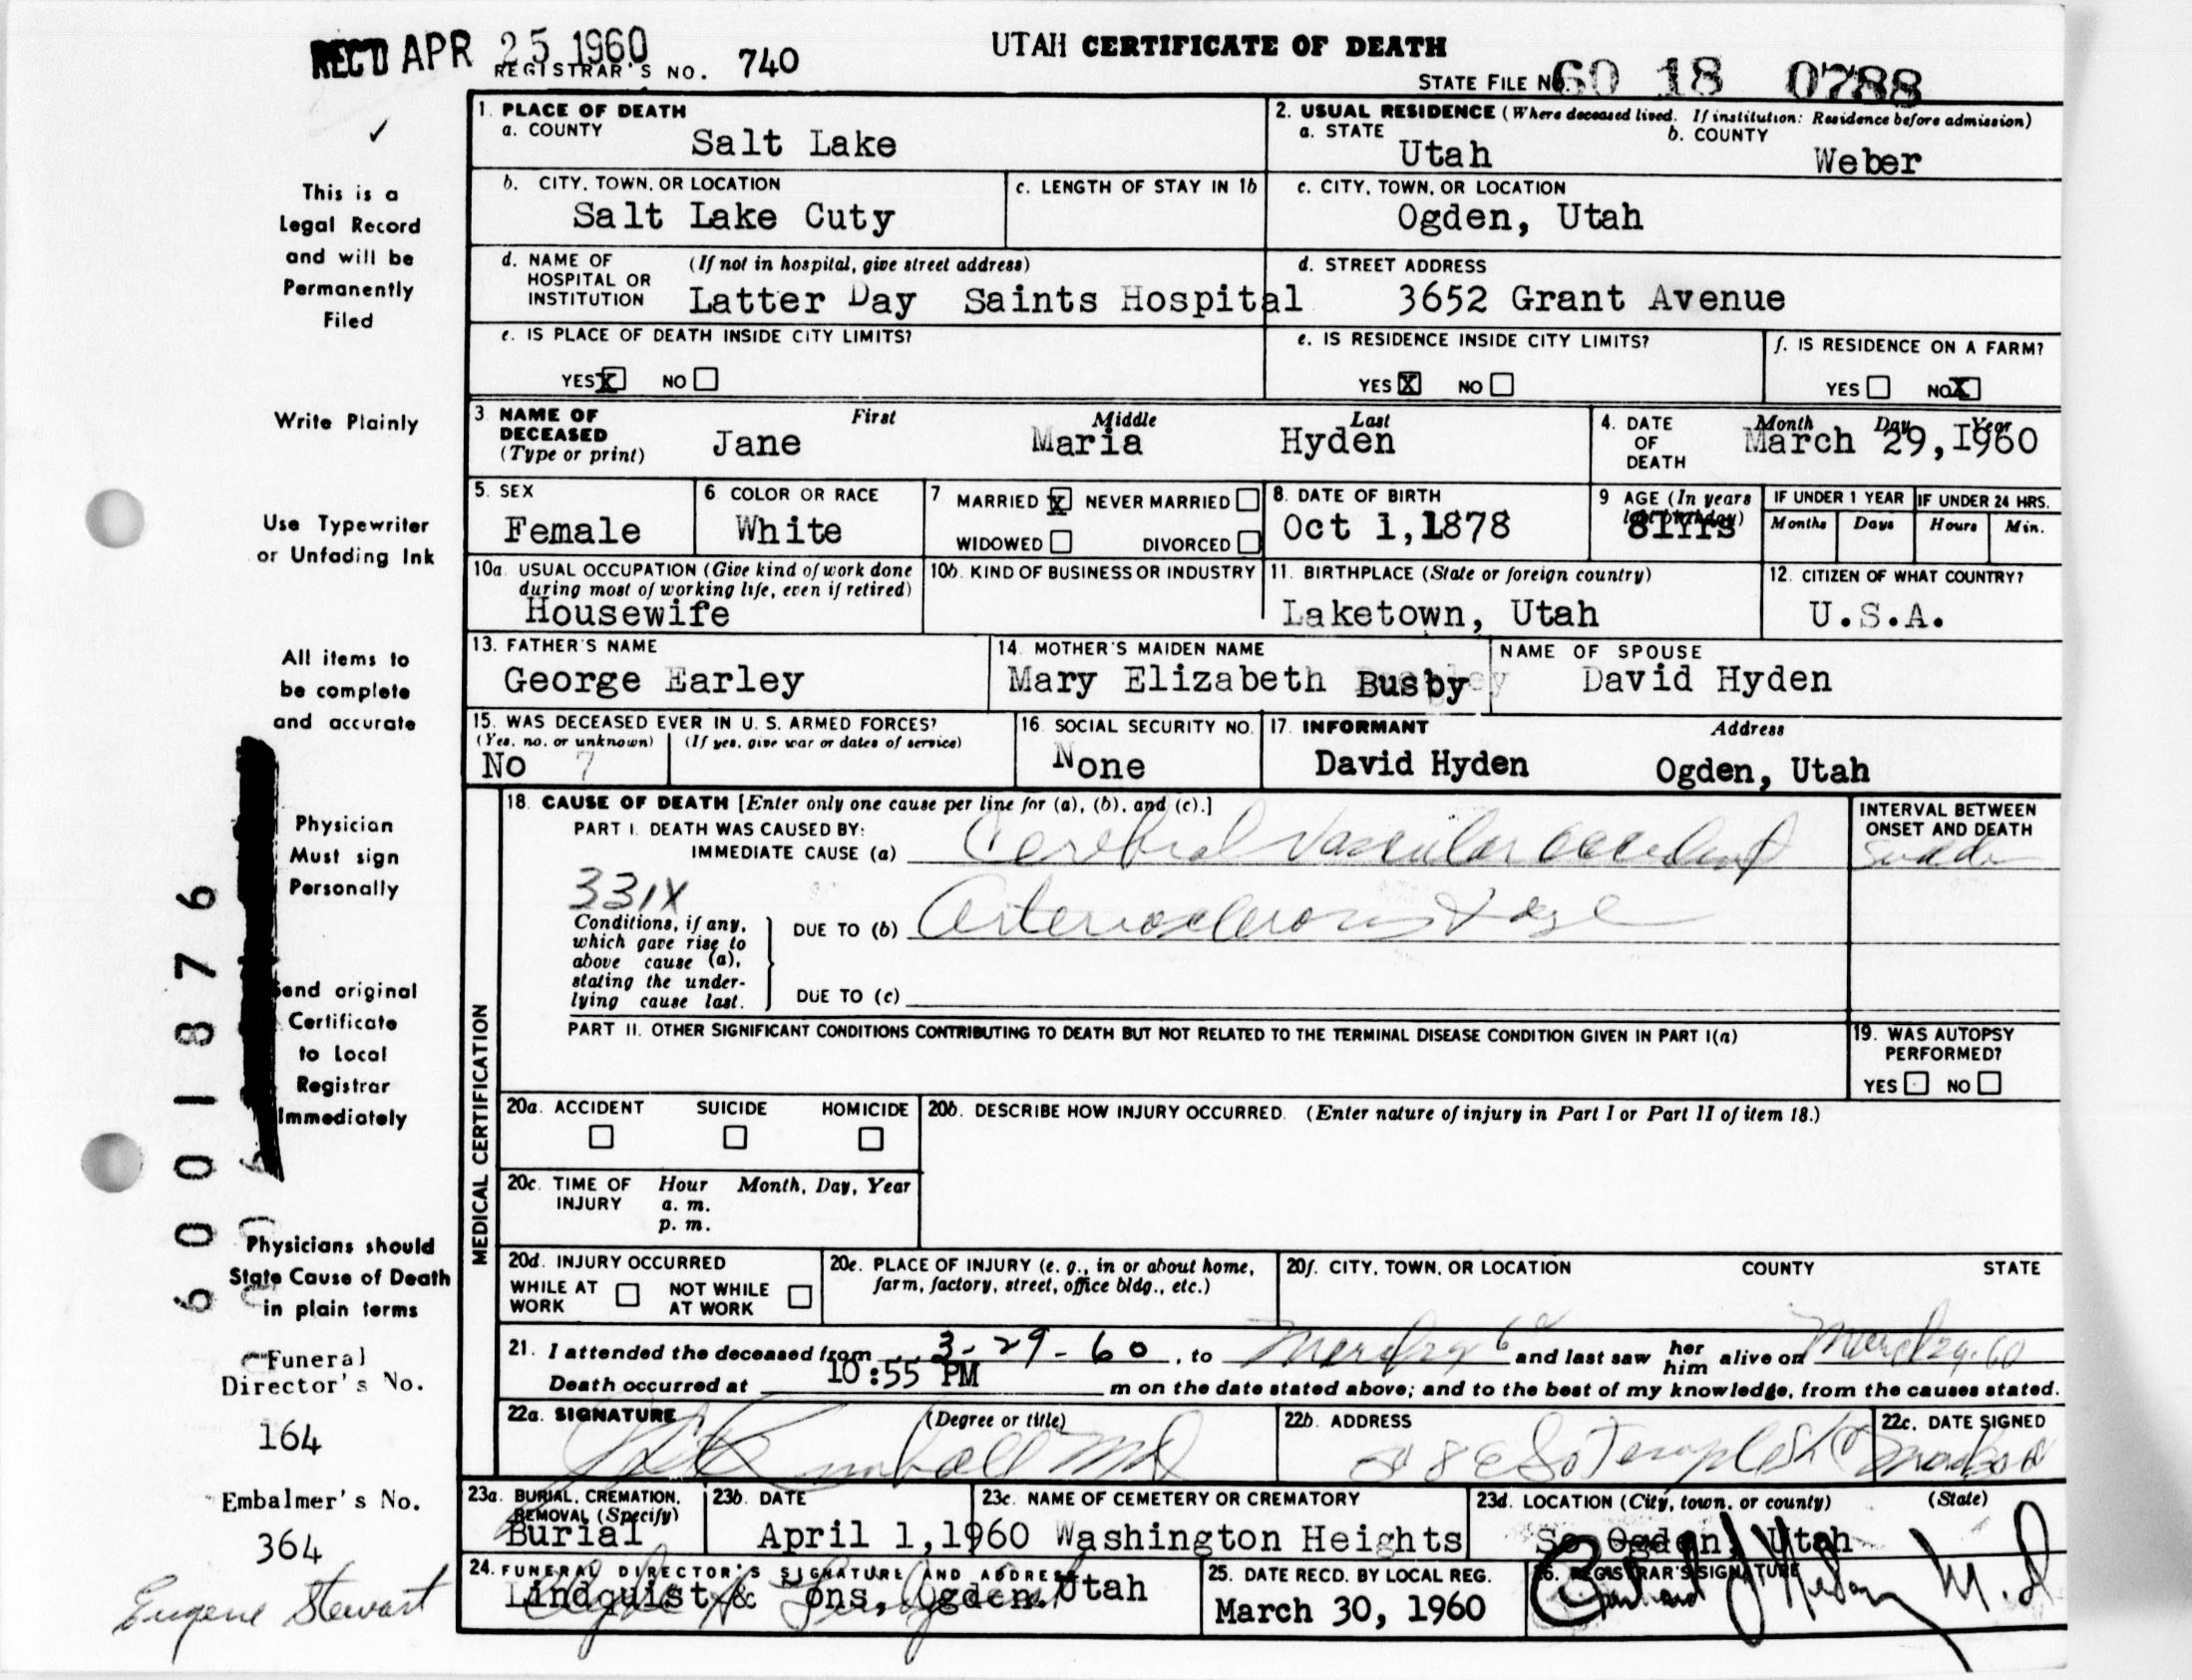 REC'D APR 25 1960
REGISTRAR'S NO. 740
UTAH CERTIFICATE OF DEATH
STATE FILE NO. 60 18 0788
1. PLACE OF DEATH
a. COUNTY
Salt Lake
2. USUAL RESIDENCE (Where deceased lived. If institution: Residence before admission)
a. STATE
Utah
b. COUNTY
Weber
b. CITY, TOWN, OR LOCATION
Salt Lake Cuty
c. LENGTH OF STAY IN 1b
c. CITY, TOWN, OR LOCATION
Ogden, Utah
d. NAME OF HOSPITAL OR INSTITUTION
(If not in hospital, give street address)
Latter Day Saints Hospital
d. STREET ADDRESS
3652 Grant Avenue
e. IS PLACE OF DEATH INSIDE CITY LIMITS?
YES X NO
e. IS RESIDENCE INSIDE CITY LIMITS?
YES X NO
f. IS RESIDENCE ON A FARM?
YES NO X
3 NAME OF DECEASED
(Type or print)
First
Jane
Middle
Maria
Last
Hyden
4. DATE OF DEATH
Month Day Year
March 29, 1960
5. SEX
Female
6. COLOR OR RACE
White
7 MARRIED X NEVER MARRIED
WIDOWED DIVORCED
8. DATE OF BIRTH
Oct 1, 1878
9 AGE (In years last birthday)
81Yrs
IF UNDER 1 YEAR
Months Days
IF UNDER 24 HRS.
Hours Min.
10a. USUAL OCCUPATION (Give kind of work done during most of working life, even if retired)
Housewife
10b. KIND OF BUSINESS OR INDUSTRY
11. BIRTHPLACE (State or foreign country)
Laketown, Utah
12. CITIZEN OF WHAT COUNTRY?
U.S.A.
13. FATHER'S NAME
George Earley
14. MOTHER'S MAIDEN NAME
Mary Elizabeth Busby
NAME OF SPOUSE
David Hyden
15. WAS DECEASED EVER IN U. S. ARMED FORCES?
(Yes, no, or unknown) (If yes, give war or dates of service)
No 7
16. SOCIAL SECURITY NO.
None
17. INFORMANT
David Hyden
Address
Ogden, Utah
MEDICAL CERTIFICATION
18. CAUSE OF DEATH [Enter only one cause per line for (a), (b), and (c).]
PART I. DEATH WAS CAUSED BY:
IMMEDIATE CAUSE (a) Cerebral Vascular accident
INTERVAL BETWEEN ONSET AND DEATH
331X
Conditions, if any, which gave rise to above cause (a), stating the underlying cause last.
DUE TO (b) Arteriosclerosis & age
DUE TO (c)
PART II. OTHER SIGNIFICANT CONDITIONS CONTRIBUTING TO DEATH BUT NOT RELATED TO THE TERMINAL DISEASE CONDITION GIVEN IN PART I(a)
19. WAS AUTOPSY PERFORMED?
YES NO
20a. ACCIDENT SUICIDE HOMICIDE
20b. DESCRIBE HOW INJURY OCCURRED. (Enter nature of injury in Part I or Part II of item 18.)
20c. TIME OF INJURY
Hour Month, Day, Year
a. m.
p. m.
20d. INJURY OCCURRED
WHILE AT WORK NOT WHILE AT WORK
20e. PLACE OF INJURY (e. g., in or about home, farm, factory, street, office bldg., etc.)
20f. CITY, TOWN, OR LOCATION COUNTY STATE
21. I attended the deceased from 3-29-60, to March 29 60 and last saw her him alive on March 29-60
Death occurred at 10:55 PM m on the date stated above; and to the best of my knowledge, from the causes stated.
22a. SIGNATURE (Degree or title)
Kimball MD
22b. ADDRESS
So Temple St
22c. DATE SIGNED
23a. BURIAL, CREMATION, REMOVAL (Specify)
Burial
23b. DATE
April 1, 1960
23c. NAME OF CEMETERY OR CREMATORY
Washington Heights
23d. LOCATION (City, town, or county) (State)
So Ogden, Utah
24. FUNERAL DIRECTOR'S SIGNATURE AND ADDRESS
Lindquist & Sons, Ogden, Utah
25. DATE RECD. BY LOCAL REG.
March 30, 1960
26. REGISTRAR'S SIGNATURE
M.D
This is a
Legal Record
and will be
Permanently
Filed
Write Plainly
Use Typewriter
or Unfading Ink
All items to
be complete
and accurate
Physician
Must sign
Personally
Send original
Certificate
to Local
Registrar
Immediately
Physicians should
State Cause of Death
in plain terms
6001876
Funeral
Director's No.
164
Embalmer's No.
364
Eugene Stewart